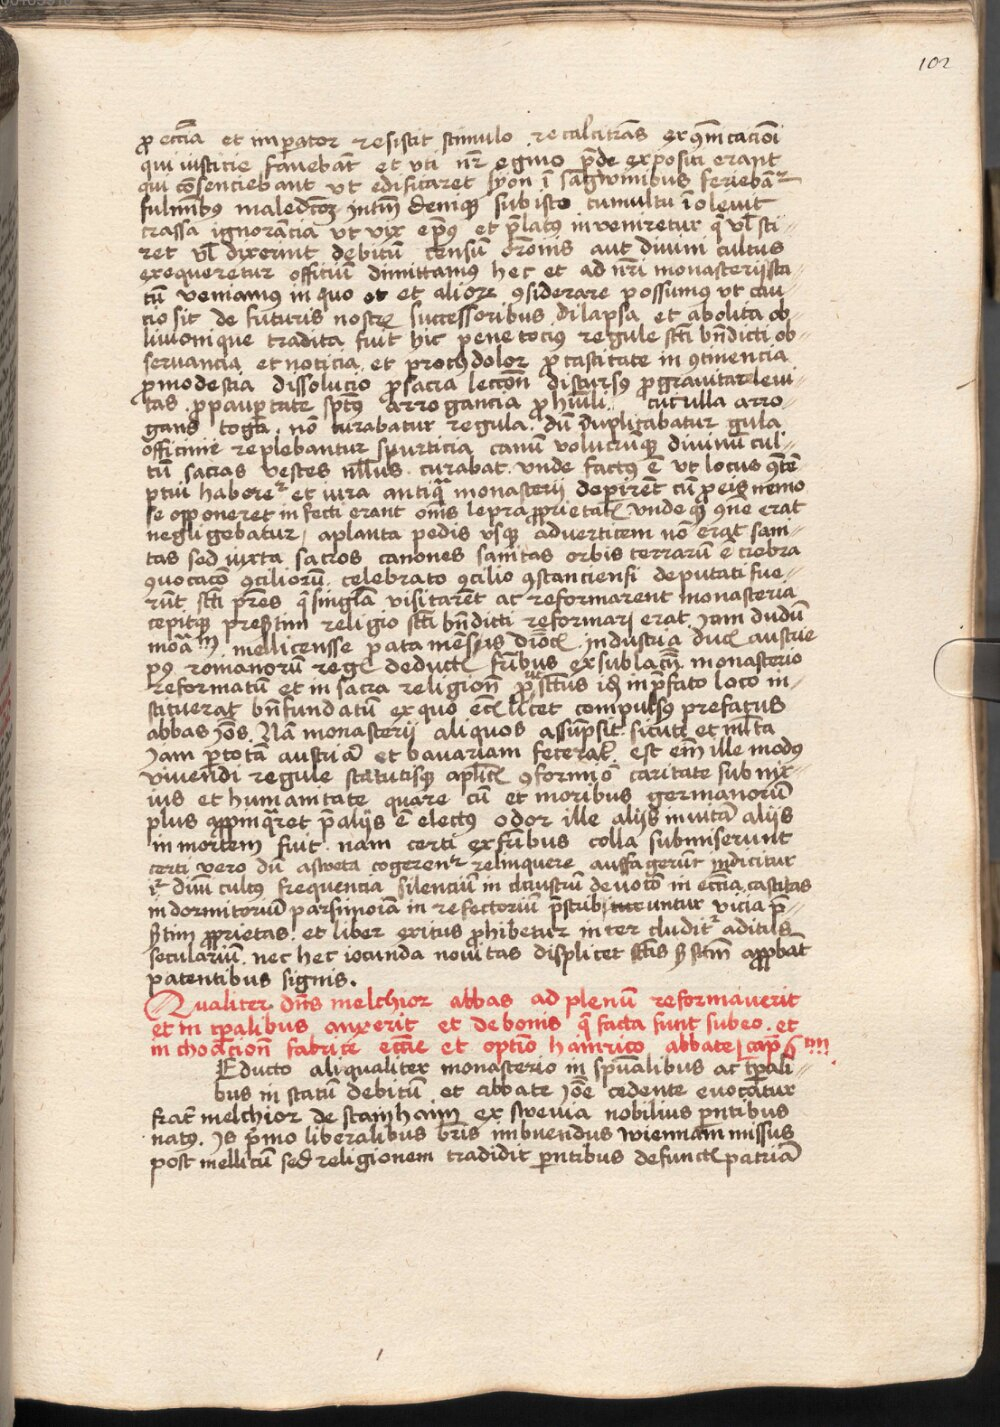 102
p̱ ecc̄ia et imp̱ator resistit stimulo recalcitrās exꝯm̄cacioī
qui iusticie fauebāt et vti nr̄ egino p̄de expositi erant
qui cōsenciebant vt edificaret syon ī sāgwinibus feriebāt᷑
fulmībꝫ maledcōꝫ Intm̄ deniqꝫ sub isto tumultu īoleuit
crassa ignorācia vt vix ep̄us et p̄latꝯ inveniretur q̄ vl̄ sci
ret vl̄ dixerint debitū censū or̄onis aut diuini cultus
exequeretur officiū dimittamꝯ hec et ad nr̄i monasterij sta
tū veniamꝯ in quo et et aliorꝫ ꝯsiderare possumꝯ vt cau
cio sit de futuris nostrꝭ successoribus dilapsa et abolita ob
liuioniqꝫ tradita fuit hic pene tocius regule sc̄ti bn̄dicti ob
seruancia et noticia et prochdolor ꝓ castitate in ꝯtinencia
ꝓ modestia dissolucio ꝓ sacra lecc̄on̄ discursꝯ ꝓ grauitate leui
tas ꝓ paup̱tate sp̄tꝯ arrogancia ꝓ hūili cuculla arro
gans toga nō curabatur regula dū duplicabatur gula
officine replebantur spurticia canū volucrūqꝫ diuinū cul
tū sacras vestes nllus curabat vnde factꝯ ē vt locus ꝯtē
ptui habere᷑ et iura antiq̄ monasterij deperirēt cū ꝓ eis nemo
se opponeret infecti erant om̄s lepra ꝓprietatꝭ vnde qꝫ ꝯne erat
negligebatur aplanta pedis vsqꝫ ad verticem nō erat sani
tas sed iuxta sacros canones sanitas orbis terrarū ē crebra
ꝯuocacō ꝯciliorū celebrato ꝯcilio ꝯstanciensi deputati fue
rūt sc̄ti pr̄es q̄ singl̄a visitarēt ac reformarent monasteria
cepitqꝫ presertim religio sc̄ti bn̄dicti reformarj erat Iam dudū
mellicensse patauiensis dioc̄ industria ducꝭ austrie
pꝯ romanorū regꝭ deductꝭ fr̄ibus ex sublacn̄ monasterio
reformatū et in sacra religion̄ ꝓut sc̄tus in p̄fato loco in
stituerat bn̄ fundatū ex quo ecꝭ licet compulsꝯ prefatus
abbas Joēs Nam monasterij aliquos assūpsit sicut et ml̄ta
Iam ꝑ totā austriā et bauariam fecerat est em̄ ille modꝯ
viuendi regule statutisqꝫ ap̄licꝭ ꝯformis caritate sub nix
ius et humanitate quare cū et moribus germanorū
plus appinq̄ret p̄ alijs ē electꝯ odor ille alijs in vitā alijs
in mortem fuit nam certi ex fr̄ibus colla submiserunt
certi vero dū asweta cogerent᷑ relinquere auffugerūt indicitur
diūi cultꝯ frequencia silenciū in claustrū deuocō in ecc̄ia castitas
in dormitoriū parsimoīa in refectoriū p̄scribuntur vicia p̄
sertim ꝓprietas et liber exitus ꝓhibetur inter cludit᷑ aditus
seculariū nec hec iocunda nouitas displicet appbat
patentibus signis.
Qualiter dn̄s melchior abbas ad plenū reformauerit
et in tp̱alibus auxerit et de bonis q̄ facta sunt sub eo et
inchoacion̄ fabrice ecc̄ie et optīo hainrico abbate cap̄ 6tm
Educto aliqualiter monasterio in sp̄ualibus ac tp̱ali
bus in statū debitū et abbate Joē cedente euocatur
frat̄ melchior de stainhaim ex sweuia nobilius pn̄tibus
natꝯ Is p̄mo liberalibus lr̄is imbuendus wiennam missus
post mellicū sed religionem tradidit pn̄tibus defunctꝭ patriā